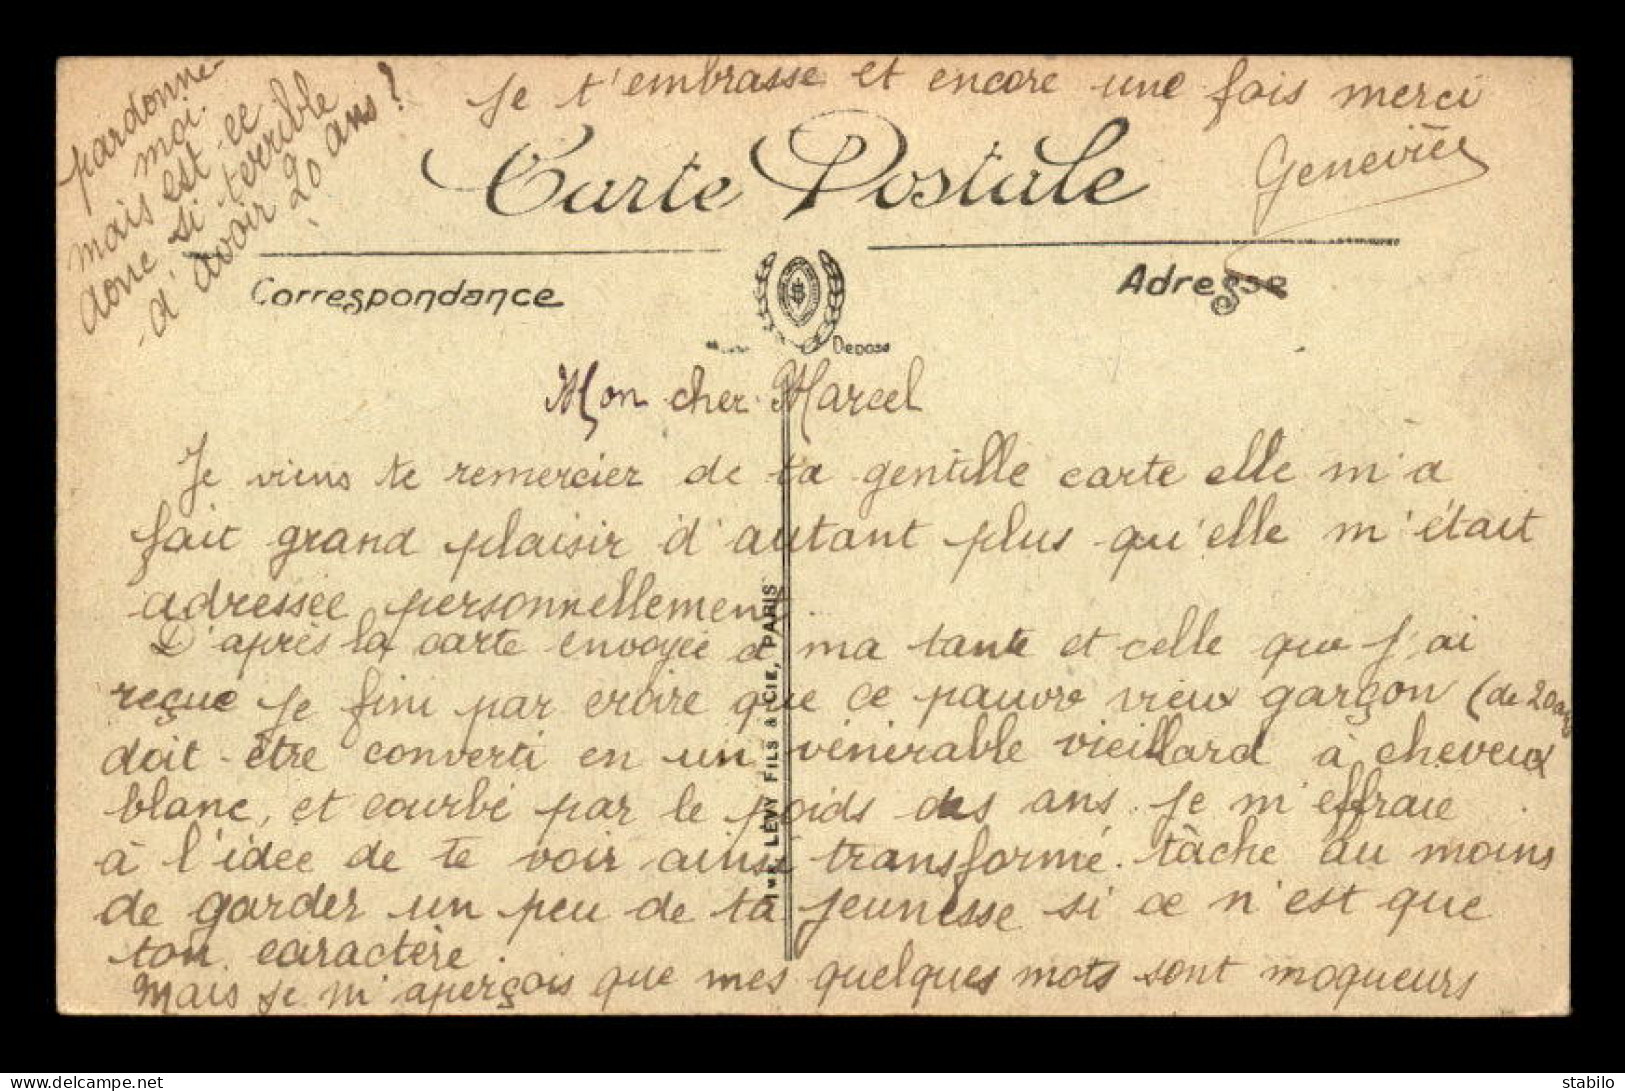 pardonne-
moi.
mais est-ce
donc si terrible
d'avoir 20 ans ?
Je t'embrasse et encore une fois merci
Geneviève
Carte Postale
Correspondance
Adresse
Mon cher Marcel
Je viens te remercier de ta gentille carte elle m'a
fait grand plaisir d'autant plus qu'elle m'était
adressée personnellement.
D'après la carte envoyée à ma tante et celle que j'ai
reçue je fini par croire que ce pauvre vieux garçon (de 20 ans
doit être converti en un vénérable vieillard à cheveux
blanc, et courbé par le poids des ans. Je m'effraie
à l'idée de te voir ainsi transformé. tâche au moins
de garder un peu de ta jeunesse si ce n'est que
ton caractère.
Mais je m'aperçois que mes quelques mots sont moqueurs
LÉVY FILS & CIE, PARIS
delcampe.net
stabilo